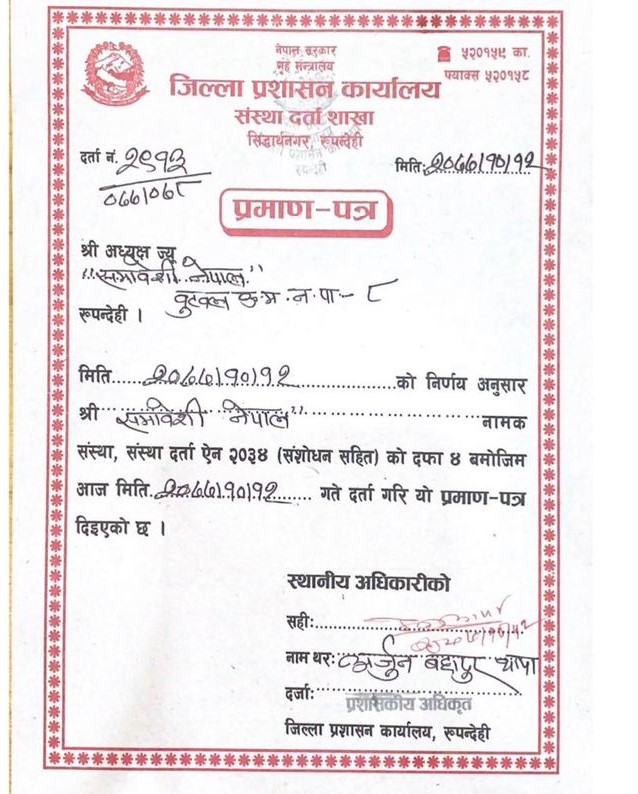 नेपाल सरकार
गृह मन्त्रालय
जिल्ला प्रशासन कार्यालय
संस्था दर्ता शाखा
सिद्धार्थनगर, रूपन्देही
☎ ५२०१५९ का.
फ्याक्स ५२०१५८
दर्ता नं. २९१३
०६७/०६८
मिति: २०६७/१०/१२
प्रमाण-पत्र
श्री अध्यक्ष ज्यू
"समावेशी नेपाल"
बुटवल उ.म.न.पा.- ८
रूपन्देही ।
मिति.....२०६७/१०/१२.....को निर्णय अनुसार
श्री "समावेशी नेपाल"..... नामक
संस्था, संस्था दर्ता ऐन २०३४ (संशोधन सहित) को दफा ४ बमोजिम
आज मिति.२०६७/१०/१२....... गते दर्ता गरि यो प्रमाण-पत्र
दिइएको छ ।
स्थानीय अधिकारीको
सही:
नाम थर: अर्जुन बहादुर थापा
दर्जा:
प्रशासकीय अधिकृत
जिल्ला प्रशासन कार्यालय, रूपन्देही